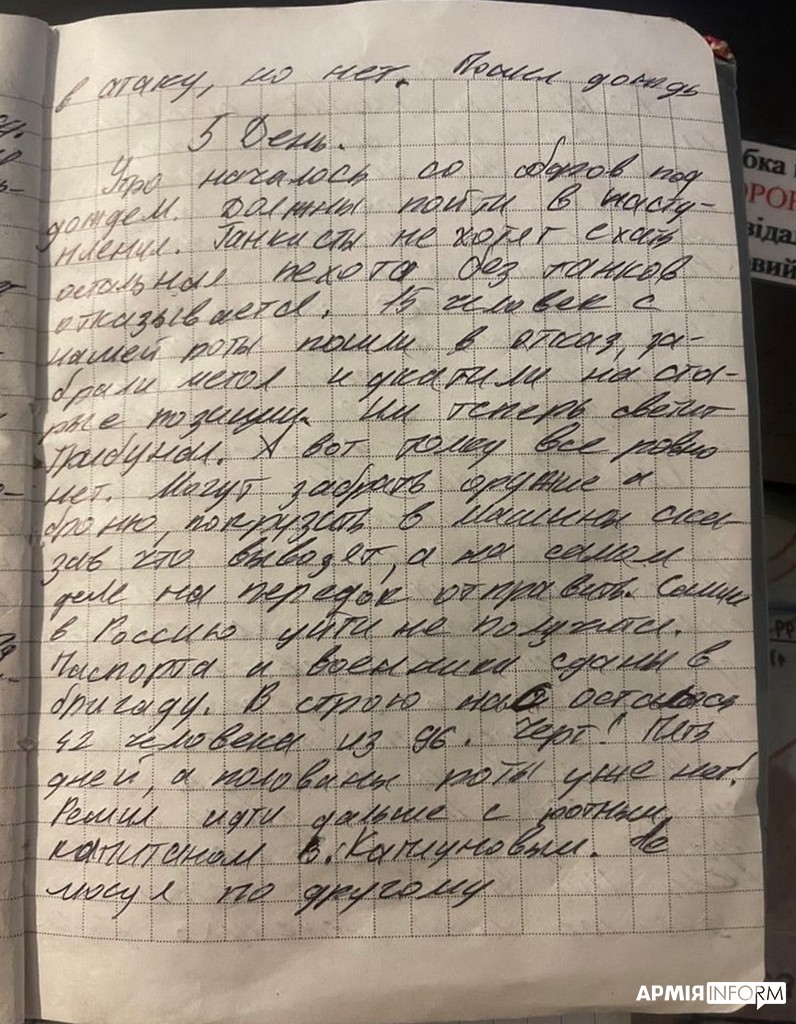 в атаку, но нет. Пошел дождь
5 День.
Утро началось со сборов под
дождем. Должны пойти в насту-
пления. Танкисты не хотят ехать
остальная пехота без танков
отказывается. 15 человек с
нашей роты пошли в отказ, за-
брали метол и укатили на ста-
рые позиции. Им теперь светит
Трибунал. А вот толку все ровно
нет. Могут забрать оружие и
броню, погрузить в машины ска-
зав что вывозят, а на самом
деле на передок отправить. Самим
в Россию уйти не получится.
Паспорта и военники сданы в
бригаду. В строю нас осталось
42 человека из 96. Черт! Пять
дней, а половины роты уже нет!
Решил идти дальше с ротным
капитаном В. Капшуновым. Не
могу я по другому
бка
ОРО
відал
овий
АРМІЯ INFORM